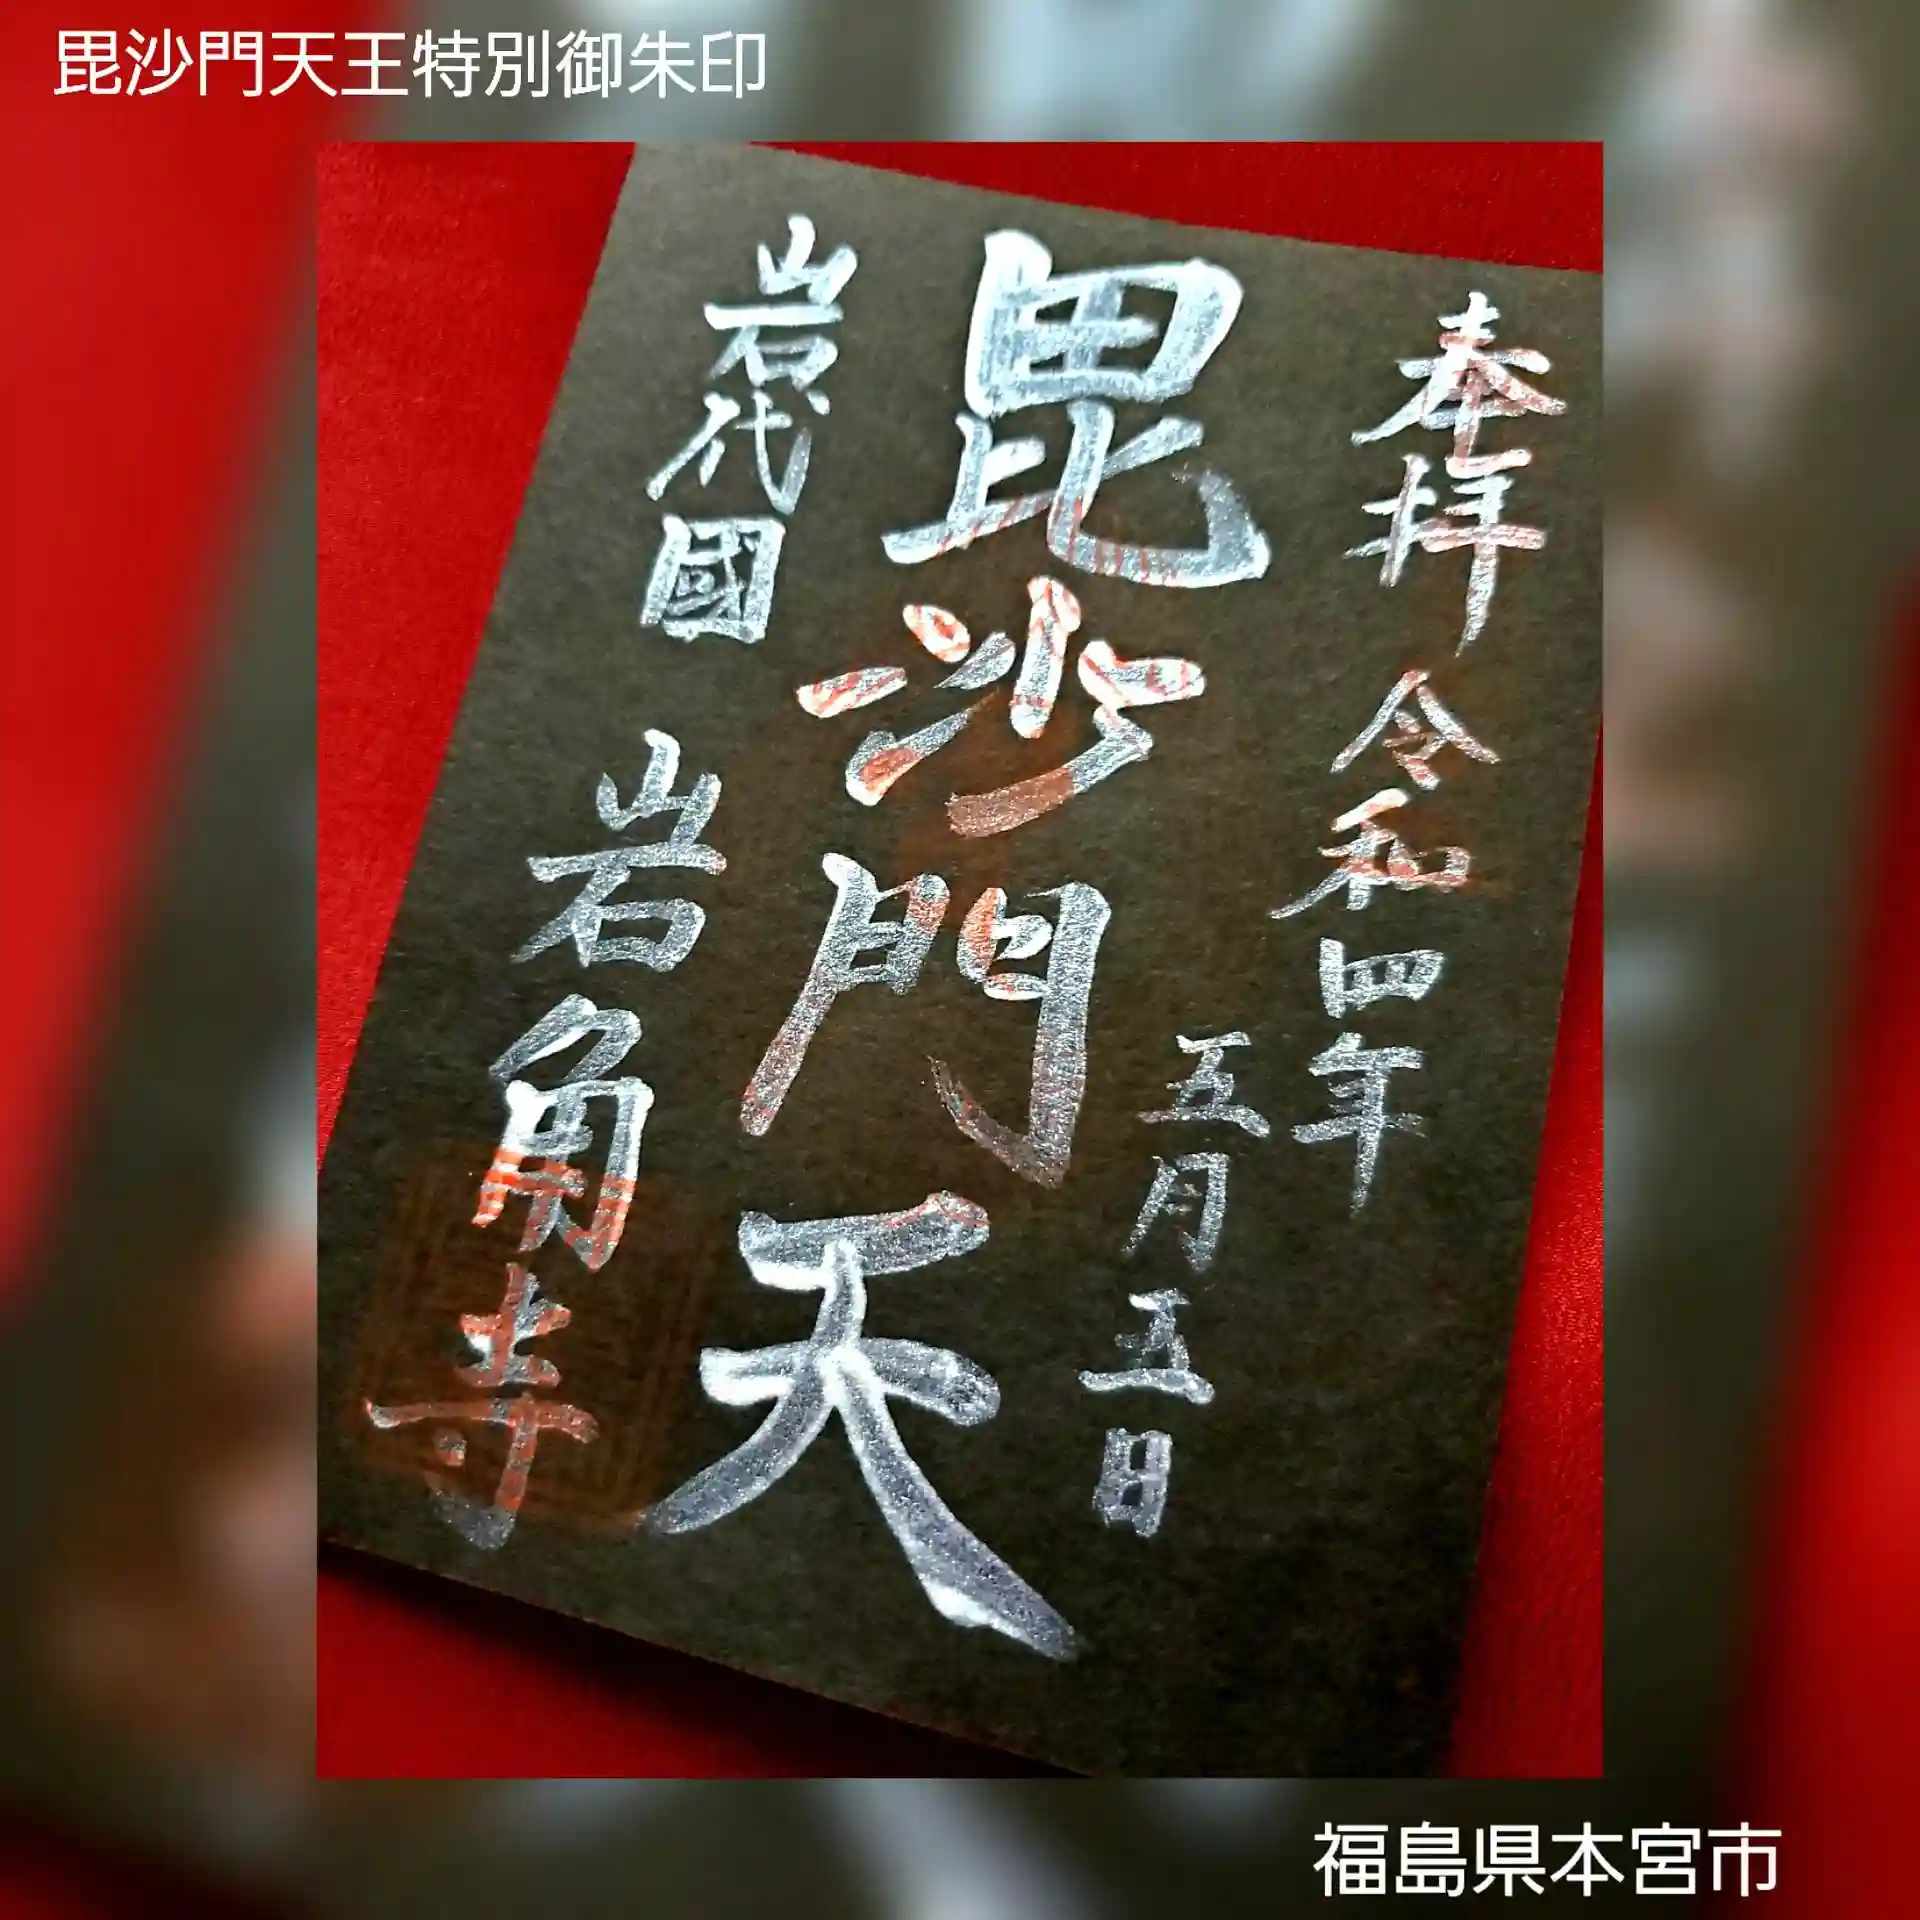 毘沙門天王特別御朱印
奉拝 令和四年
五月五日
毘沙門天
岩代國 岩角寺
福島県本宮市